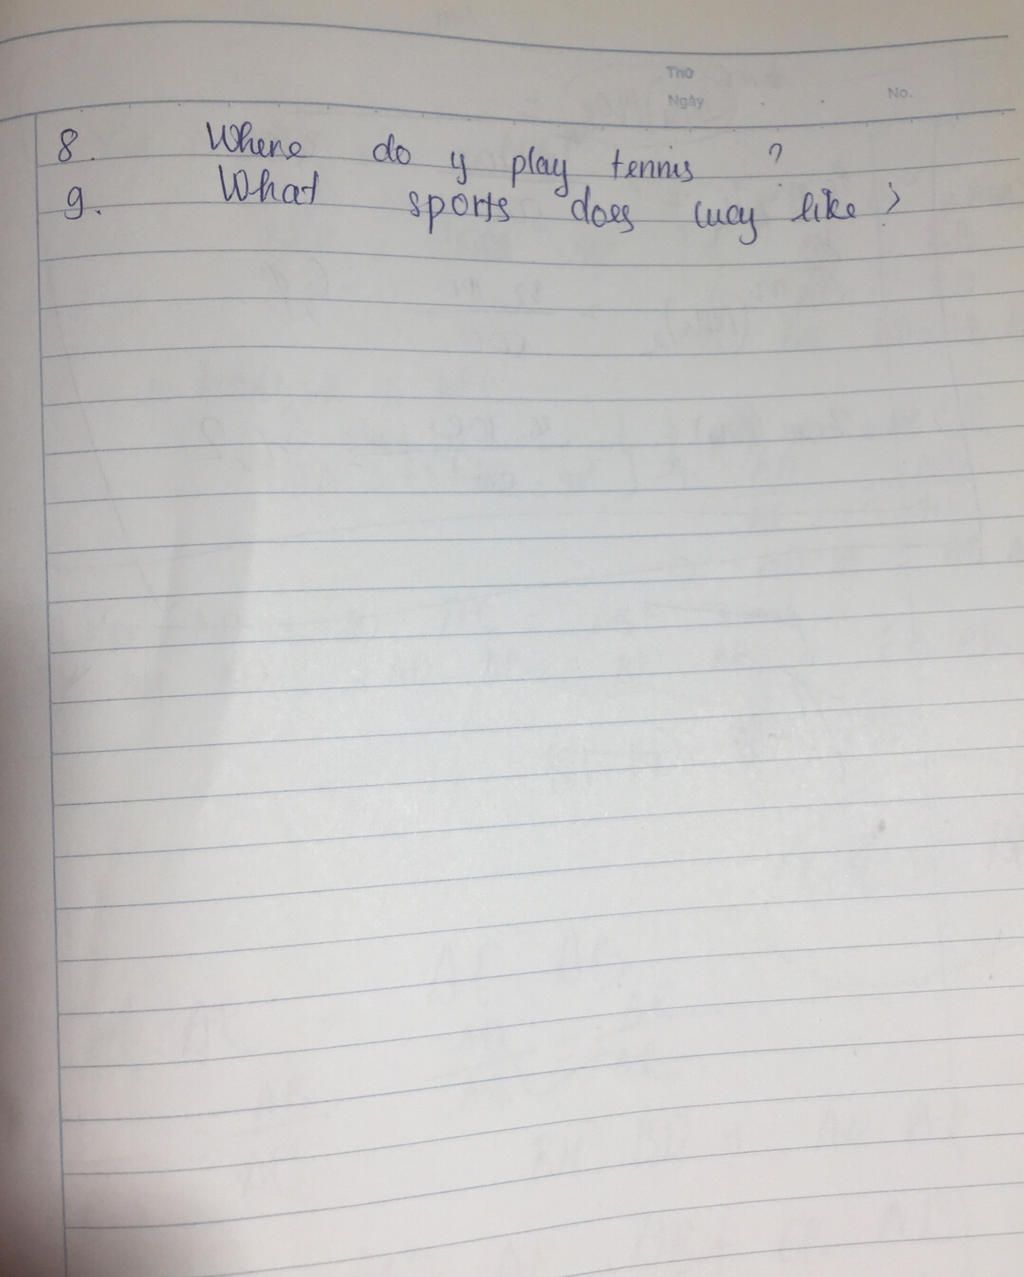 Thứ
Ngày . .
No.
8. Where do y play tennis ?
9. What sports does Lucy like ?